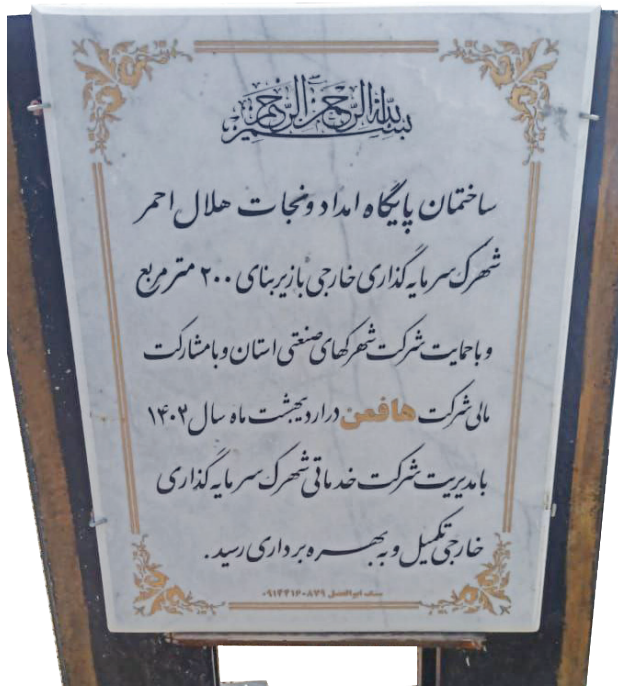 بسم الله الرحمن الرحیم
ساختمان پایگاه امداد و نجات هلال احمر
شهرک سرمایه گذاری خارجی با زیربنای ۲۰۰ متر مربع
و با حمایت شرکت شهرکهای صنعتی استان و با مشارکت
مالی شرکت هافمن در اردیبهشت ماه سال ۱۴۰۲
با مدیریت شرکت خدماتی شهرک سرمایه گذاری
خارجی تکمیل و به بهره برداری رسید.
سنگ ابوالفضل ۰۹۱۴۴۱۶۰۸۷۹